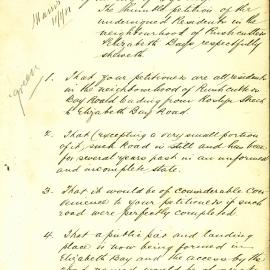 The Humble petition of the
undersigned Residents in the
neighbourhood of Rushcutters
& Elizabeth Bays respectfully
sheweth
1. That your petitioners are all residents
in the neighbourhood of Rushcutters
Bay Road leading from Roslyn Street
to Elizabeth Bay Road.
2. That (excepting a very small portion
of it) such Road is still and has been
for several years past in an unformed
and incomplete state.
3. That it would be of considerable con
venience to your petitioners if such
road were perfectly completed.
4. That a public pier and landing
place is now being formed in
Elizabeth Bay and the access by the